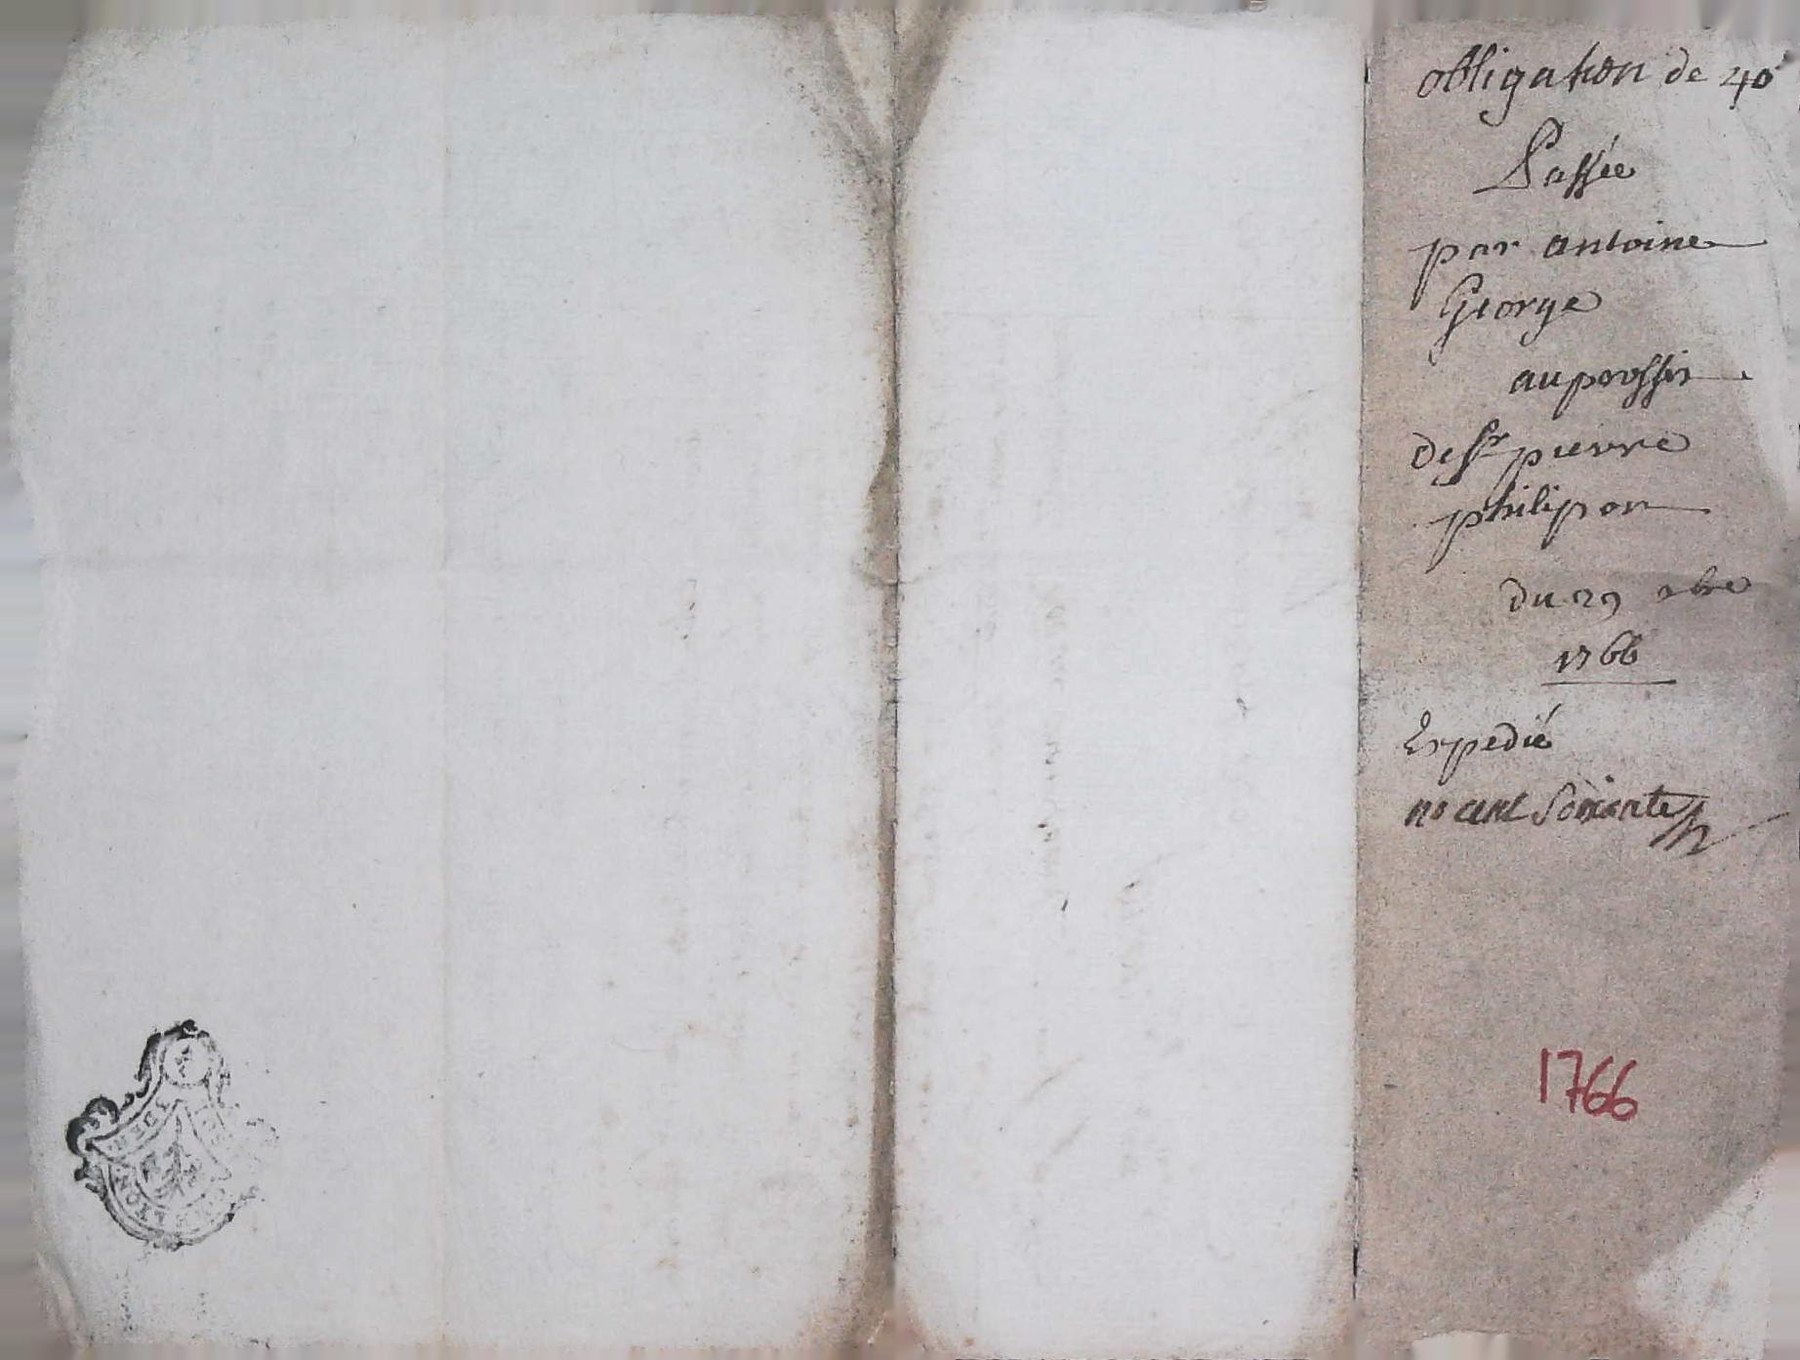 obligation de 40
Passée
par antoine
George
au proffit
de Sr pierre
philipon
du 29 xbre
1766
Expedié
no cent Soixante
1766